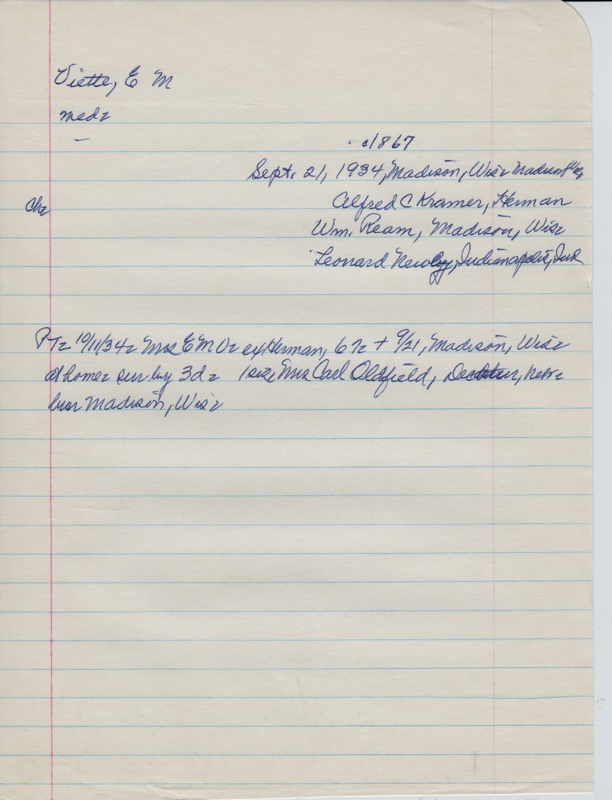 Viette, E M
medz
c1867
Sept. 21, 1934, Madison, Wisz Madison
Chz
Alfred C Kramer, Herman
Wm. Ream, Madison, Wisz
Leonard Newby, Indianapolis, Ind
PTz 10/11/34z Mrs E M Vz ex Herman, 67z + 9/21, Madison, Wisz
at homez sur by 3dz 1 siz, Mrs Carl Oldfield, Decatur, nebrz
bur Madison, Wisz